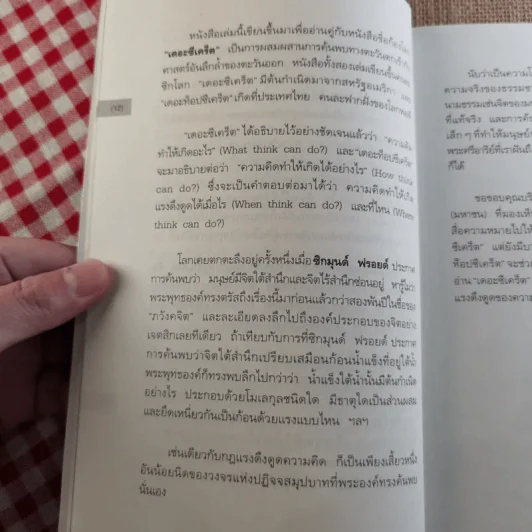 หนังสือเล่มนี้เขียนขึ้นมาเพื่ออ่านคู่กับหนังสือชื่อก้องโลก
"เดอะซีเคร็ต" เป็นการผสมผสานการค้นพบทางตะวันตกเข้ากับ
ศาสตร์อันลึกล้ำของตะวันออก หนังสือทั้งสองเล่มเขียนขึ้นคนละ
ซีกโลก "เดอะซีเคร็ต" มีต้นกำเนิดมาจากสหรัฐอเมริกา และ
เดอะท็อปซีเคร็ต เกิดที่ประเทศไทย คนละฟากฝั่งของโลกพอดี
(12)
"เดอะซีเคร็ต" ได้อธิบายไว้อย่างชัดเจนแล้วว่า "ความคิด
ทำให้เกิดอะไร" (What think can do?) และ "เดอะท็อปซีเคร็ต"
จะมาอธิบายต่อว่า "ความคิดทำให้เกิดได้อย่างไร" (How think
can do?) ซึ่งจะเป็นคำตอบต่อมาได้ว่า ความคิดทำให้เกิด
แรงดึงดูดได้เมื่อไร (When think can do?) และที่ไหน (Where
think can do?)
โลกเคยตกตะลึงอยู่ครั้งหนึ่งเมื่อ ซิกมุนด์ ฟรอยด์ ประกาศ
การค้นพบว่า มนุษย์มีจิตใต้สำนึกและจิตไร้สำนึกซ่อนอยู่ หารู้ไม่ว่า
พระพุทธองค์ทรงตรัสถึงเรื่องนี้มาก่อนแล้วกว่าสองพันปีในชื่อของ
"ภวังคจิต" และละเอียดลงลึกไปถึงองค์ประกอบของจิตอย่าง
เจตสิกเลยทีเดียว ถ้าเทียบกับการที่ซิกมุนด์ ฟรอยด์ ประกาศ
การค้นพบว่าจิตใต้สำนึกเปรียบเสมือนก้อนน้ำแข็งที่อยู่ใต้น้ำ
พระพุทธองค์ก็ทรงพบลึกไปกว่าว่า น้ำแข็งใต้น้ำนั้นมีต้นกำเนิด
อย่างไร ประกอบด้วยโมเลกุลชนิดใด มีธาตุใดเป็นส่วนผสม
และยึดเหนี่ยวกันเป็นก้อนด้วยแรงแบบไหน ฯลฯ
เช่นเดียวกับกฎแรงดึงดูดความคิด ก็เป็นเพียงเสี้ยวหนึ่ง
อันน้อยนิดของวงจรแห่งปฏิจจสมุปบาทที่พระองค์ทรงค้นพบ
นั่นเอง
นับว่าเป็นความ
ความจริงของธรรมชา
นามธรรมเช่นจิตของ
ที่แท้จริง และการค้
เล็กๆ ที่ทำให้มนุษย์
พระศรีอาริย์ที่เราฝันถึ
ก็ได้
ขอขอบคุณบริ
(มหาชน) ที่มองเห็
สื่อความหมายไปให้
ซีเคร็ต" แต่ยังมี
ท็อปซีเคร็ต" จะช่วย
อ่าน "เดอะซีเคร็ต"
แรงดึงดูดของความ